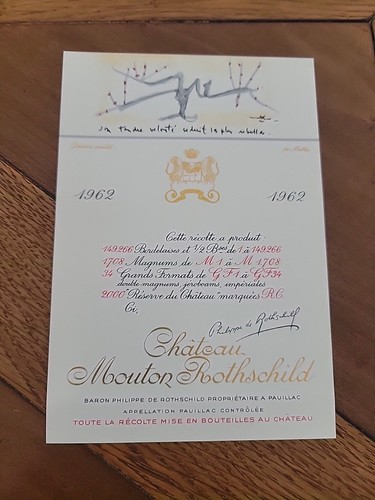 son tendre velouté séduit la plus rebelle.
1962 1962
Cette récolte a produit
149.266 Bordelaises et 1/2 Bses de 1 à 149.266
1708 Magnums de M 1 à M 1708
34 Grands Formats de G F 1 à G F 34
double magnums, jeroboams, impériales
2000 "Réserve du Château" marquées R.C.
Ci,
Philippe de Rothschild
Château
Mouton Rothschild
BARON PHILIPPE DE ROTHSCHILD PROPRIÉTAIRE A PAUILLAC
APPELLATION PAUILLAC CONTRÔLÉE
TOUTE LA RÉCOLTE MISE EN BOUTEILLES AU CHÂTEAU